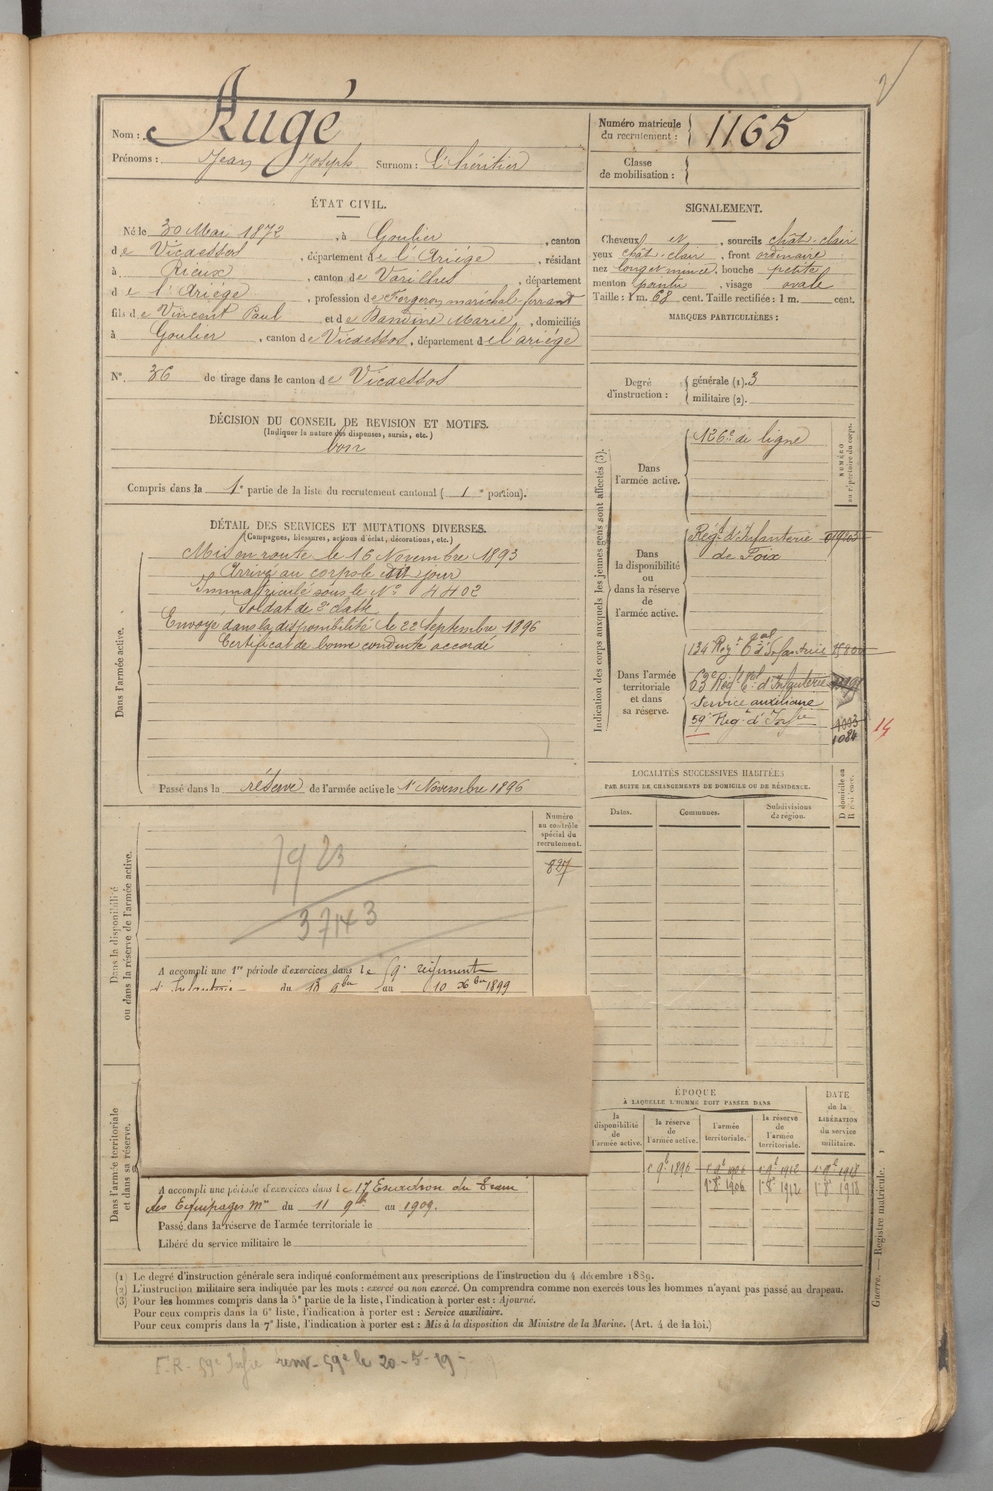 Nom : Augé
Prénoms : Jean Joseph Surnom : L'héritier
Numéro matricule du recrutement : 1165
Classe de mobilisation :
ÉTAT CIVIL.
Né le 30 Mai 1872, à Goulier, canton
de Vicdessos, département de l'Ariège, résidant
à Rieux, canton de Varilhes, département
de l'Ariège, profession de Forgeron maréchal-ferrant
fils de Vincent Paul et de Bandine Marie, domiciliés
à Goulier, canton de Vicdessos, département de l'ariége
N° 36 de tirage dans le canton de Vicdessos
SIGNALEMENT.
Cheveux et, sourcils chât-clair
yeux chât-clair, front ordinaire
nez long et mince, bouche petite
menton pointu, visage ovale
Taille : 1 m. 68 cent. Taille rectifiée : 1 m. cent.
MARQUES PARTICULIÈRES :
Degré d'instruction : générale (1). 3
militaire (2).
DÉCISION DU CONSEIL DE REVISION ET MOTIFS.
(Indiquer la nature des dispenses, sursis, etc.)
bon
Compris dans la 1e partie de la liste du recrutement cantonal ( 1e portion).
DÉTAIL DES SERVICES ET MUTATIONS DIVERSES.
(Campagnes, blessures, actions d'éclat, décorations, etc.)
Dans l'armée active.
Mis en route le 16 Novembre 1893
Arrivé au corps le dit jour
Immatriculé sous le N° 4402
Soldat de 2e classe
Envoyé dans la disponibilité le 22 Septembre 1896
Certificat de bonne conduite accordé
Passé dans la réserve de l'armée active le 1er Novembre 1896
Indication des corps auxquels les jeunes gens sont affectés (3).
NUMÉRO au répertoire du corps.
Dans l'armée active.
126e de ligne
Dans la disponibilité ou dans la réserve de l'armée active.
Régt d'Infanterie
de Foix
Dans l'armée territoriale et dans sa réserve.
134 Regt tal d'Infanterie
63e Regt tal d'Infanterie
Service auxiliaire
59e Reg.t d'Infie 1093
1084 14
LOCALITÉS SUCCESSIVES HABITÉES
PAR SUITE DE CHANGEMENTS DE DOMICILE OU DE RÉSIDENCE.
Dates.
Communes.
Subdivisions de région.
Domicile ou Résidence.
Dans la disponibilité ou dans la réserve de l'armée active.
Numéro au contrôle spécial du recrutement.
827
1923
37143
A accompli une 1re période d'exercices dans le 59e régiment
d'Infanterie du 13 9bre au 10 Xbre 1899
Dans l'armée territoriale et dans sa réserve.
A accompli une période d'exercices dans le 17 Escadron du Train
des Equipages Mre du 11 9bre au 1909.
Passé dans la réserve de l'armée territoriale le
Libéré du service militaire le
ÉPOQUE
À LAQUELLE L'HOMME DOIT PASSER DANS
la disponibilité de l'armée active.
la réserve de l'armée active.
l'armée territoriale.
la réserve de l'armée territoriale.
DATE de la LIBÉRATION du service militaire.
1 9e 1896 1 9e 1906 1 9e 1912 1 9e 1918
1er 8e 1906 1er 8e 1912 1er 8e 1918
(1) Le degré d'instruction générale sera indiqué conformément aux prescriptions de l'instruction du 4 décembre 1889.
(2) L'instruction militaire sera indiquée par les mots : exercé ou non exercé. On comprendra comme non exercés tous les hommes n'ayant pas passé au drapeau.
(3) Pour les hommes compris dans la 5e partie de la liste, l'indication à porter est : Ajourné.
Pour ceux compris dans la 6e liste, l'indication à porter est : Service auxiliaire.
Pour ceux compris dans la 7e liste, l'indication à porter est : Mis à la disposition du Ministre de la Marine. (Art. 4 de la loi.)
Guerre. — Registre matricule.
F.R. 59e Infie renv. 59e le 20-5-19